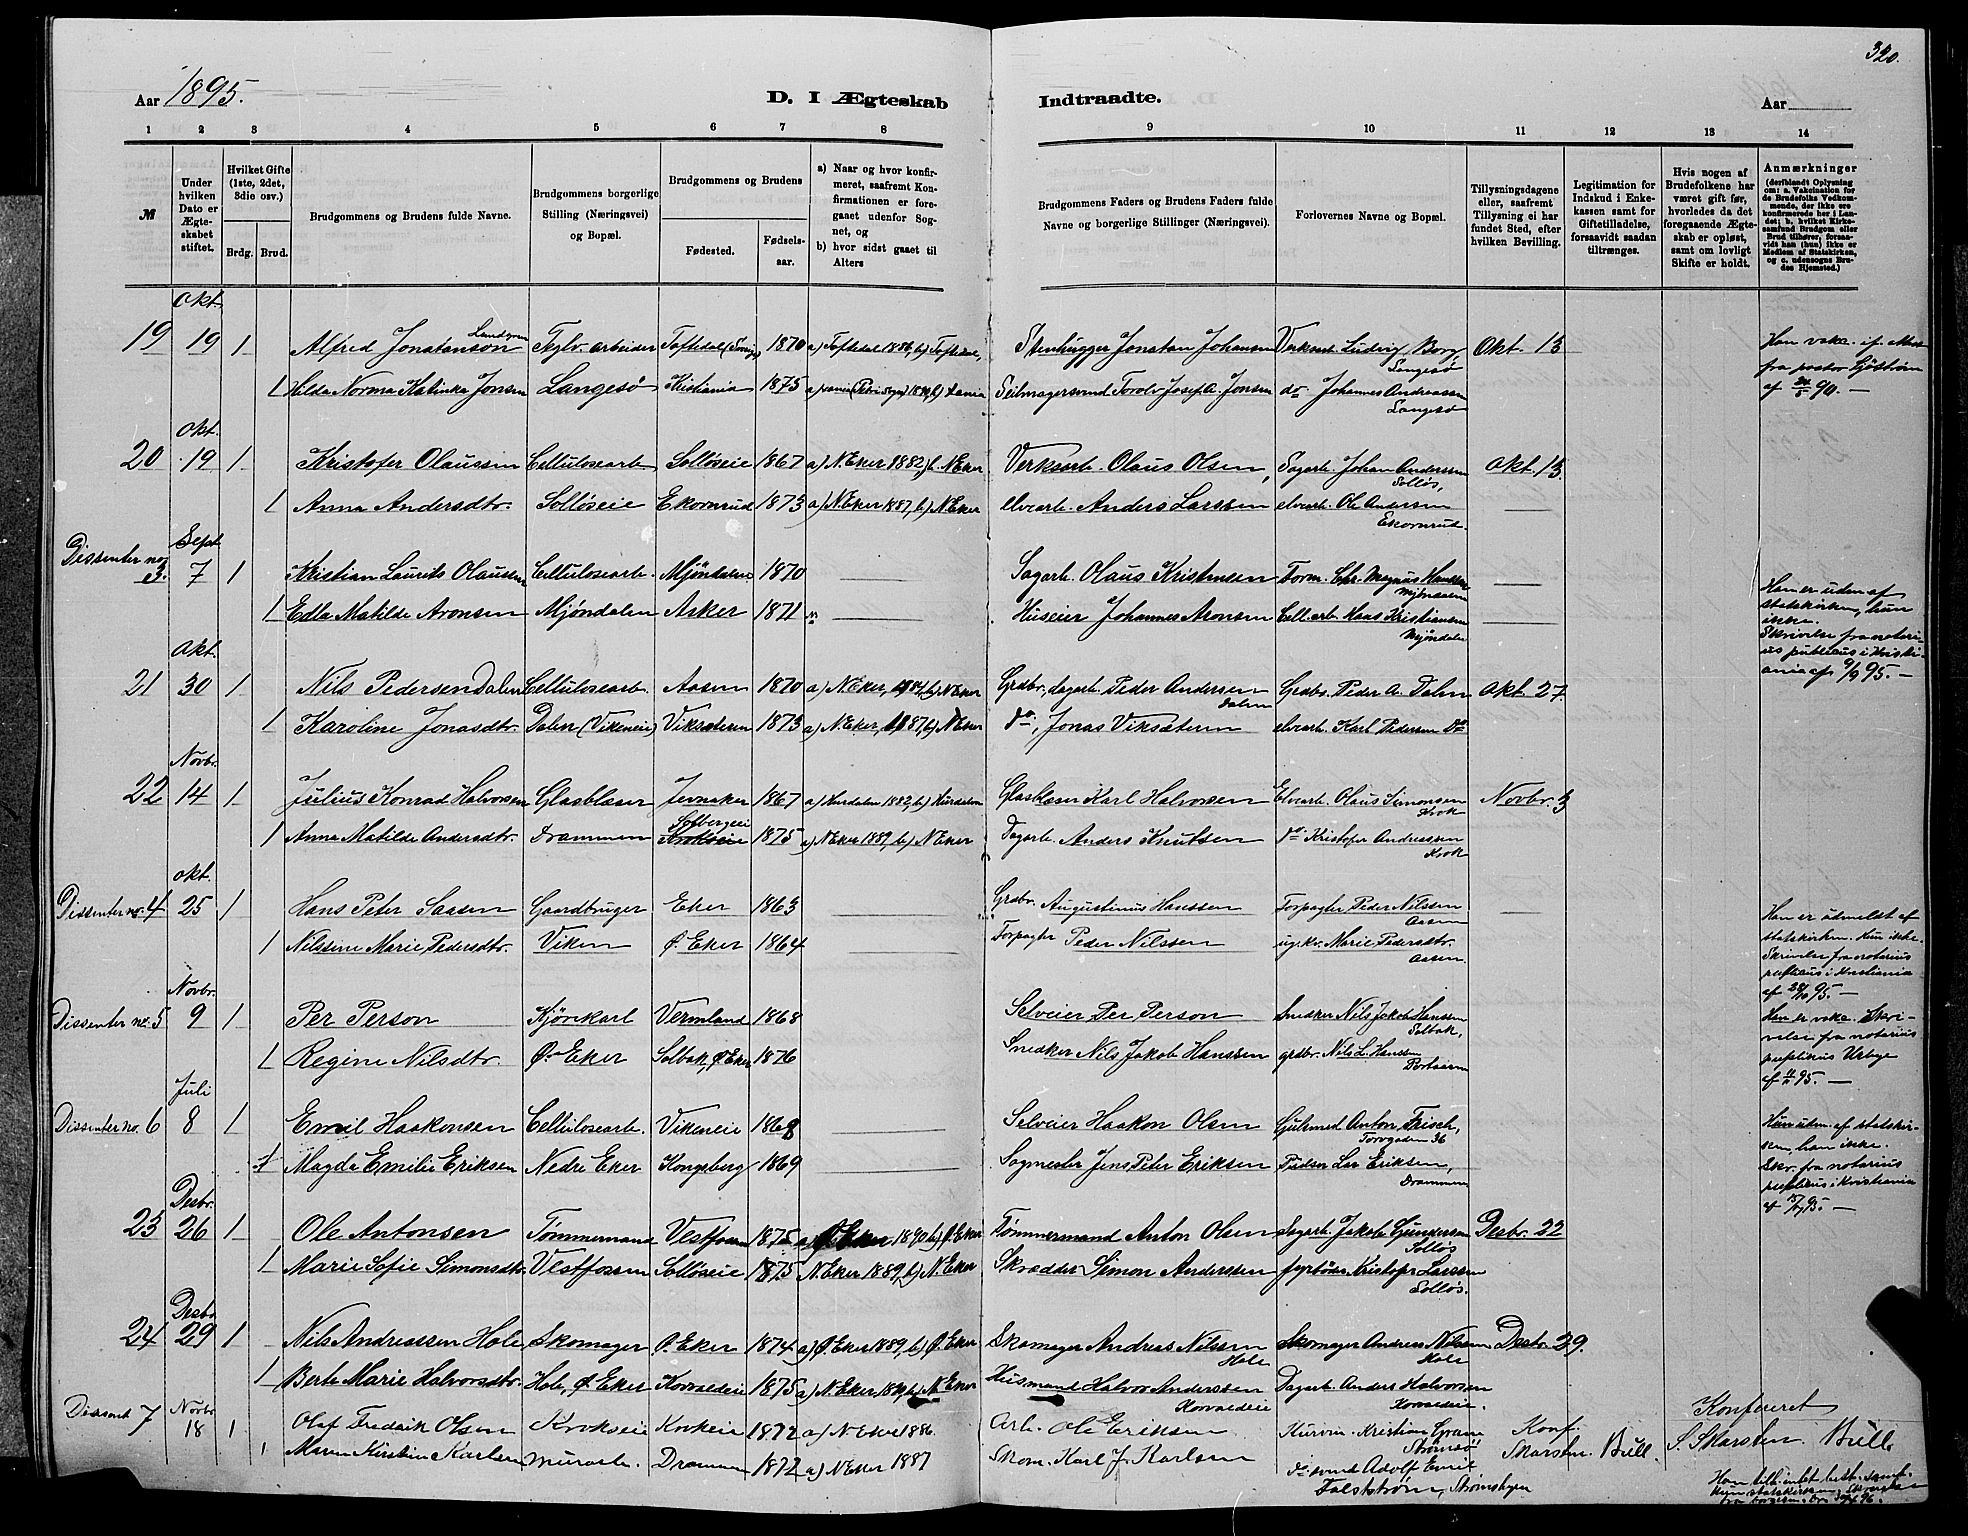 320.
Aar 1895.
D. I Ægteskab
Indtraadte.
Aar
1 2 3 4 5 6 7 8 9 10 11 12 13 14
№
Under hvilken Dato er Ægteskabet stiftet.
Hvilket Gifte (1ste, 2det, 3die osv.)
Brdg. Brud.
Brudgommens og Brudens fulde Navne.
Brudgommens borgerlige Stilling (Næringsvei) og Bopæl.
Brudgommens og Brudens
Fødested. Fødselsaar.
a) Naar og hvor konfirmeret, saafremt Konfirmationen er foregaaet udenfor Sognet, og
b) hvor sidst gaaet til Alters
Brudgommens Faders og Brudens Faders fulde Navne og borgerlige Stillinger (Næringsvei).
Forlovernes Navne og Bopæl.
Tillysningsdagene eller, saafremt Tillysning ei har fundet Sted, efter hvilken Bevilling.
Legitimation for Indskud i Enkekassen samt for Giftetilladelse, forsaavidt saadan tiltrænges.
Hvis nogen af Brudefolkene har været gift før, hvorledes da det foregaaende Ægteskab er opløst, samt om lovligt Skifte er holdt.
Anmærkninger
(deriblandt Oplysning om: a. Vakcination for de Brudefolks Vedkommende, der ikke ere konfirmerede her i Landet; b. hvilket Kirkesamfund Brudgom eller Brud tilhører, forsaavidt han (hun) ikke er Medlem af Statskirken, og c. udensogns Brudes Hjemsted.)
Okt.
19 19 1 Alfred Jonatanson Lundgren Teglv. arbeider Toftedal 1870 a) Toftedal 1886, b) Toftedal, Stenhugger Jonatan Johansen Verksarb. Ludvig Borg, Langesø Okt. 13
1 Hilda Norma Katinka Jonsen Langesø Kristiania 1875 Seilmagersvend Torolv Josef A. Jonsen do Johannes Andreassen Langesø
Okt.
20 19 1 Kristofer Olaussen Cellulosearb. Solløseie 1867 a) N. Eker 1882, b. N. Eker Verksarb. Olaus Olsen, Sagarb. Johan Anderssen Solløs, Okt. 13.
1 Anna Andersdtr. Solløseie Ekornrud 1873 a) N. Eker 1887, b) N. Eker elvearb. Anders Larssen elvearb. Ole Andersen Ekornrud.
Sept
Dissenter no. 3. 7 1 Kristian Laurits Olaussen Cellulosearb. Mjøndalen 1870 Sagarb. Olaus Kristensen Form. Chr. Magnus Hanssen Mjøndalen
Han er uden af statskirken, hun ikke. Skrivelse fra notarius publicus i Kristiania af 9/9 95. —
1 Edla Matilde Aronsen Mjøndalen Asker 1871 Huseier Johannes Aronsen Cell. arb. Hans Kristiansen Mjøndalen
Okt.
21 30 1 Nils Pedersen Dalen Cellulosearb. Aasen 1870 a) N. Eker, 1884, b) N. Eker Grdbr, dagarb. Peder Andersen Dalen Grdbr. Peder A. Dalen Okt. 27.
1 Karoline Jonasdtr. Dalen (Vikeneie) Viksæteren 1873 a) N. Eker, 1887, b) N. Eker do, Jonas Viksæteren elvearb. Karl Pedersen do
Novbr.
22 14 1 Julius Konrad Halvorsen Glasblæser Jevnaker 1867 a) Hurdalen 1882, b) Hurdalen Glasblæser Karl Halvorsen Elvearb. Olaus Simonsen Krok Novbr. 3
1 Anna Matilde Andersdtr. Drammen Solbergeie Krokseie 1875 a) N. Eker 1889, b) N. Eker Dagarb. Anders Knutsen do Kristofer Andreassen Krok
Okt.
Dissenter no. 4 25 1 Hans Peter Saasen Gaardbruger Eker 1863 Grdbr. Augustinus Hanssen Forpagter Peder Nilssen Aasen
Han er udmeldt af statskirken. Hun ikke. Skrivelse fra notarius publicus i Kristiania af 28/10 95. —
1 Nilssine Marie Pedersdtr. Viken Ø. Eker 1864 Forpagter Peder Nilssen ug. kv. Marie Pedersdtr. Aasen.
Novbr.
Dissenter nr. 5 9 1 Per Person Kjørekarl Vermland 1868 Selveier Per Person Snedker Nils Jakob Hanssen Solbak,
Han er vakc. Skrivelse fra notarius publicus
1 Regine Nilsdtr. Ø. Eker Solbak, Ø. Eker 1876 Snedker Nils Jakob Hanssen grdbr. Nils L. Hanssen
Juli
Dissenter no. 6 8 1 Emil Haakonsen Cellulosearb. Vikeneie 1868 Selveier Haakon Olsen Gjørtmed Anton Frisch, Torvgaden 36
Hun utm. af statskirken, han ikke. Skr. fra notarius publicus i Kristiania
1 Magda Emilie Eriksen Nedre Eker Kongsberg 1869 Sagmester Jens Peter Eriksen Lar Eriksen, Drammen
Desbr.
23 26 1 Ole Antonsen Tømmermand Vestfossen 1875 a) Ø. Eker 1890 b) Ø. Eker Tømmermand Anton Olsen Dagarb. Jakob Gundersen Solløs Desbr. 22
1 Marie Sofie Simonsdtr. Vestfossen Solløseie 1875 N. Eker 1889, b) N. Eker Skrædder Simon Anderssen fyrbøder Kristofer Larssen Solløs.
Desbr
24 29 1 Nils Andreassen Hole Skomager Ø. Eker 1874 a) Ø. Eker 1889, b) Ø. Eker Skomager Andreas Nilssen Hole Skomager Andreas Nilssen Hole Desbr. 29.
1 Berte Marie Halvorsdtr. Hole, Ø. Eker Korvaldeie 1875 a) N. Eker, b) N. Eker Husmand Halvor Anderssen Korvaldeie Dagarb. Anders Halvorsen Korvaldeie.
Dissent 7 Novbr. 18 1 Olaf Fredrik Olsen Krokseie Krokeie 1872 a) N. Eker 1886 Arb. Ole Eriksen Kurvm. Kristian Gram Strømsø
1 Maren Kirstine Karlsen Drammen 1872 a) N. Eker 1887 Skom. Karl J. Karlsen do svend Adolf Emil Falkstrøm, Strømshyen
Konf. Skarsten. Bull.
Konfereret
S. Skarsten. Bull